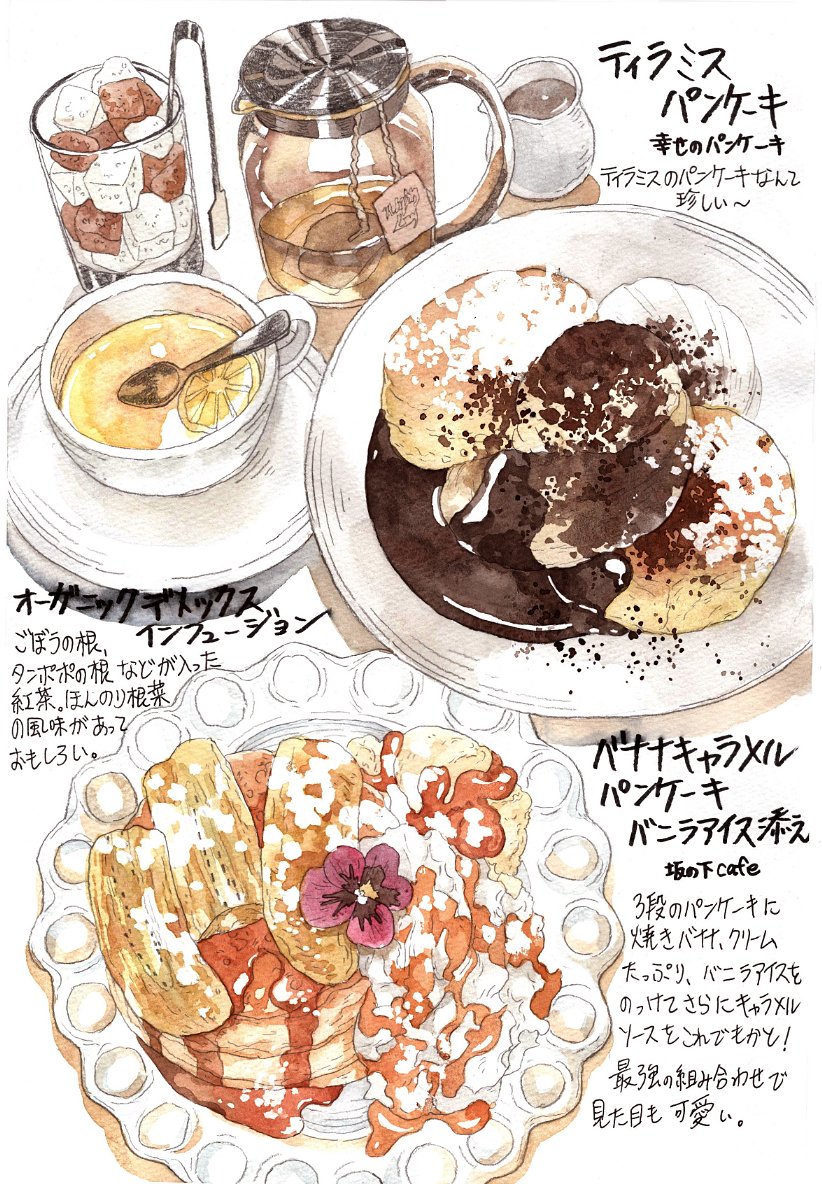 ティラミス
パンケーキ
幸せのパンケーキ
ティラミスのパンケーキなんて
珍しい～
オーガニックデトックス
インフュージョン
ごぼうの根、
タンポポの根などが入った
紅茶。ほんのり根菜
の風味があって
おもしろい。
バナナキャラメル
パンケーキ
バニラアイス添え
坂の下cafe
3段のパンケーキに
焼きバナナ、クリーム
たっぷり、バニラアイスを
のっけてさらにキャラメル
ソースをこれでもかと!
最強の組み合わせで
見た目も可愛い。